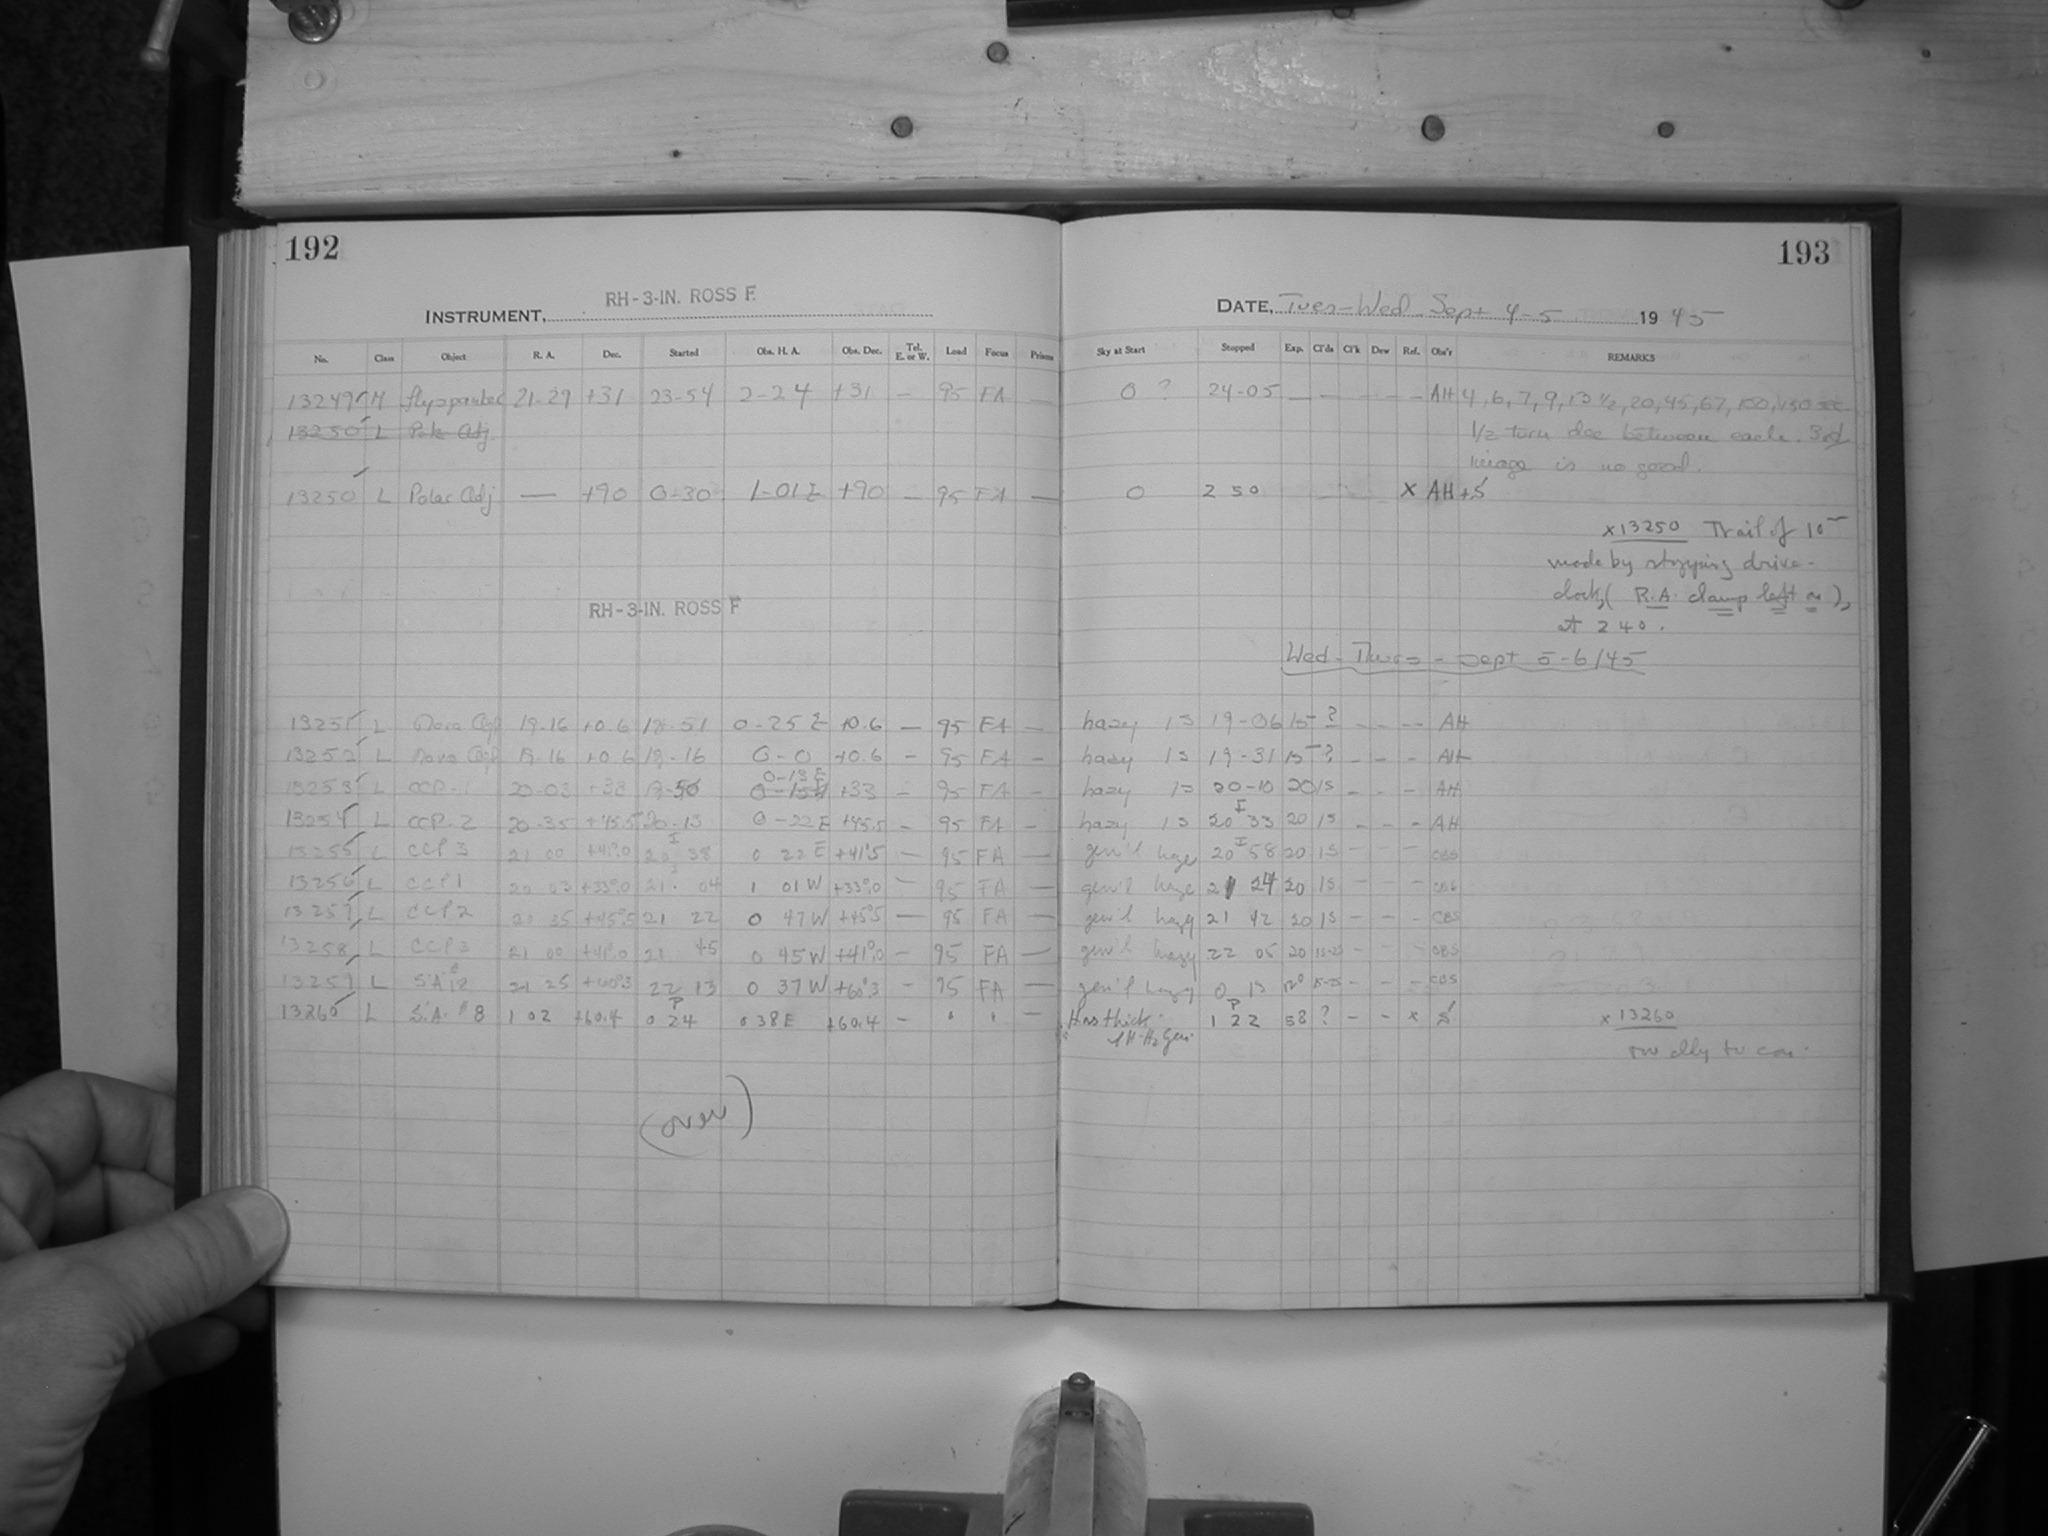 192
193
RH-3-IN. ROSS F.
INSTRUMENT,
DATE, Tues-Wed Sept 4-5 1945
No. Class Object R. A. Dec. Started Obs. H. A. Obs. Dec. Tel. E. or W. Load Focus Prisms Sky at Start Stopped Exp. Cl'ds Cl'k Dew Ref. Obs'r REMARKS
13249 M flyspanker 21-29 +31 23-54 2-24 +31 — 95 FA 0 ? 24-05 — - - - - AH 4, 6, 7, 9, 13 1/2, 20, 45, 67, 100, 150 sec
13250 L Pole Adj 1/2 turn dec between each. 3rd
image is no good.
13250 L Polar Adj — +90 0-30 1-01 E +90 — 95 FA — 0 2 50 X AH+S
x13250 Trail of 10m
made by stopping drive-
clock, (R.A. clamp left on),
at 240.
RH-3-IN. ROSS F
Wed-Thurs-Sept 5-6/45
13251 L Nova Aql 19-16 +0.6 18-51 0-25 E +0.6 — 95 FA — hazy 15 19-06 15 -? - - -- AH
13252 L Nova Aql 19-16 +0.6 19-16 0-0 +0.6 - 95 FA - hazy 15 19-31 15 -? - - - AH
0-13 E
13253 L CCP-1 20-03 +33 19-50 +33 - 95 FA - hazy 15 20-10 20 15 - - - AH
13254 L CCP-2 20-35 +45.5 20-13 0-22 E +45.5 - 95 FA - hazy 15 20 33 20 15 - - - AH
13255 L CCP 3 21 00 +41°.0 20 38 0 22 E +41°.5 — 95 FA — gen'l haze 20 58 20 15 - - - CBS
13256 L CCP1 20 03 +33°.0 21 04 1 01 W +33°.0 — 95 FA — gen'l haze 21 24 20 15 - - - CBS
13257 L CCP2 20 35 +45°.5 21 22 0 47 W +45°.5 — 95 FA — gen'l hazy 21 42 20 15 - - - CBS
13258 L CCP3 21 00 +41°.0 21 45 0 45 W +41°.0 — 95 FA — gen'l hazy 22 05 20 15-25 - - - CBS
13259 L SA 21 25 +60°.3 22 13 0 37 W +60°.3 - 95 FA — gen'l hazy 0 13 120 15-25 - - - CBS
13260 L S.A. #8 1 02 +60.4 0 24 0 38 E +60.4 - " " — thick 1 22 58 ? - - x S x13260
(over)